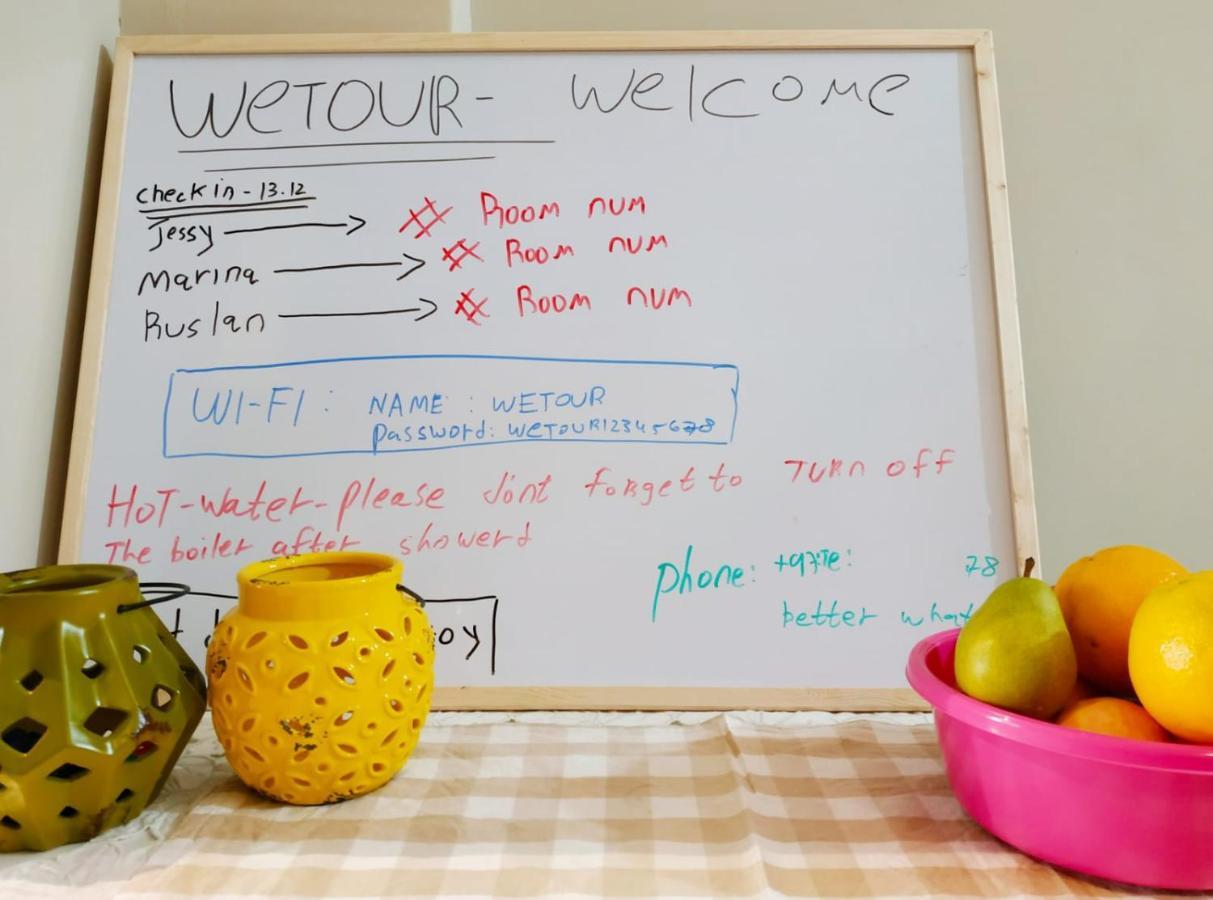 WeTOUR- welcome
check in - 13.12
Jessy → # Room num
Marina → # Room num
Ruslan → # Room num
WI-FI: NAME : WETOUR
password: WeTOUR12345678
HOT-water-please dont forget to TURN off
The boiler after showerd
phone: 78
better what
oy